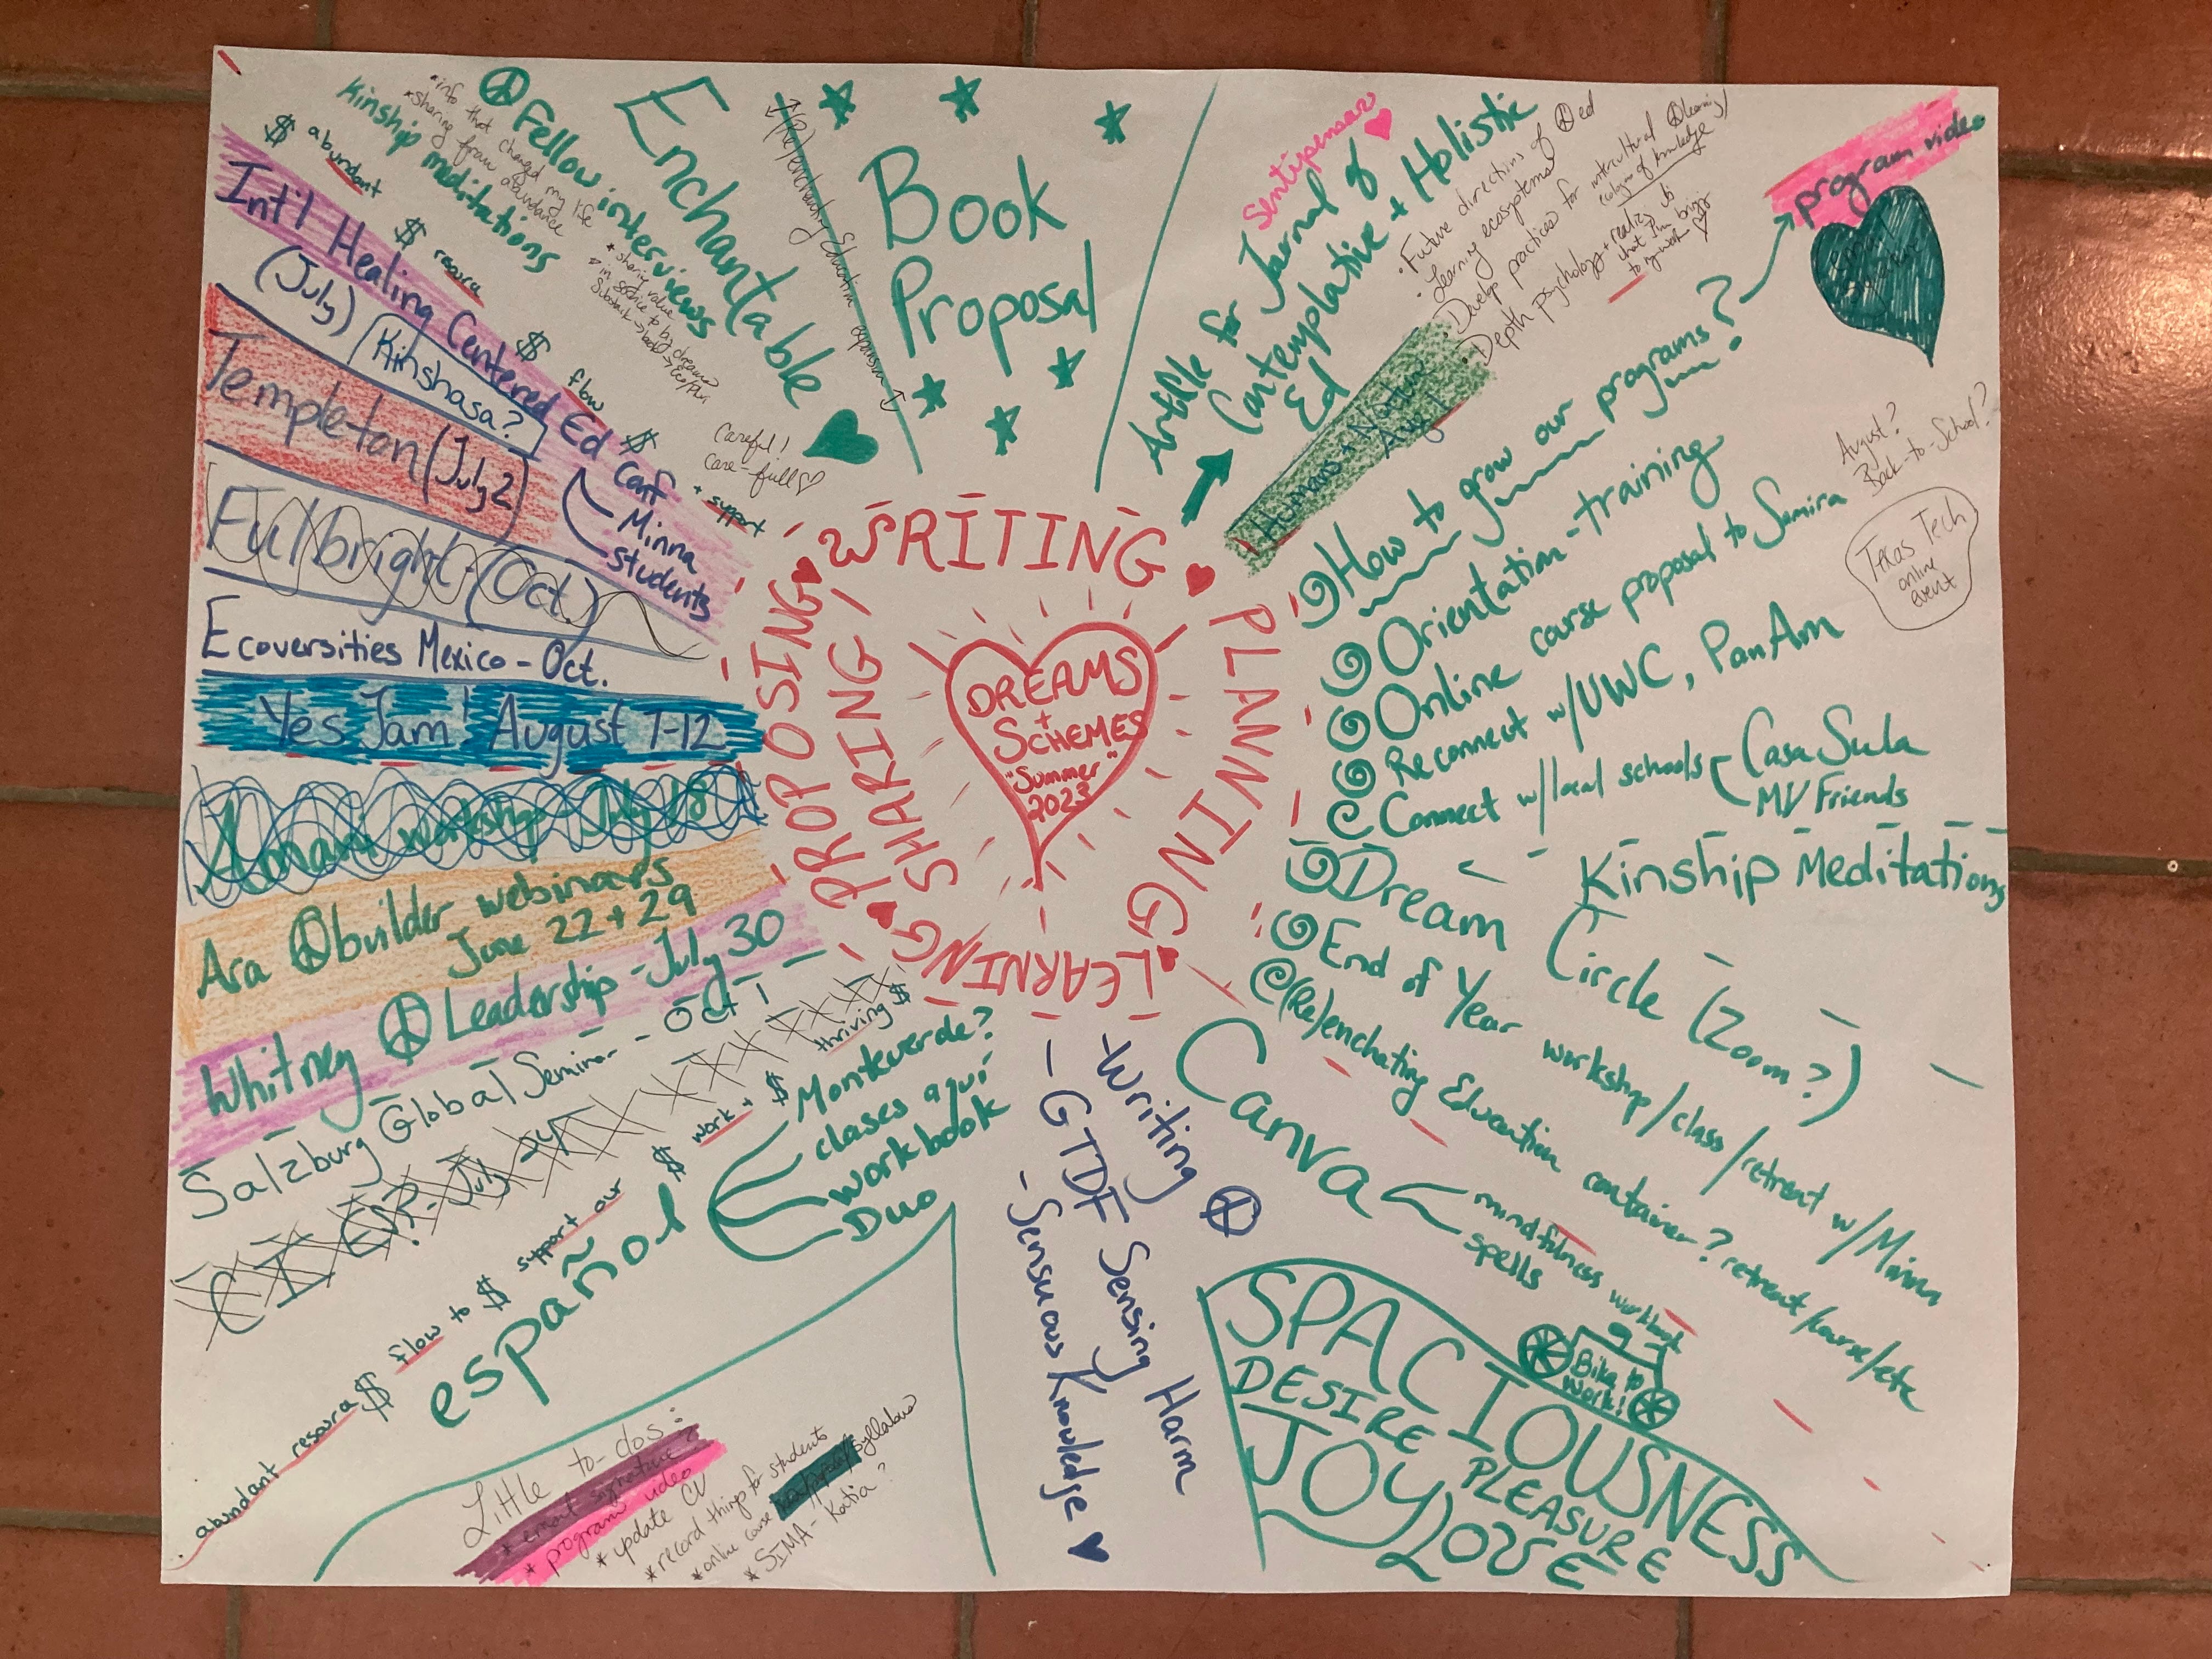 DREAMS
+
SCHEMES
"Summer"
2023
WRITING
PLANNING
LEARNING
SHARING
PROPOSING
Book
Proposal
Enchantable
(Re)enchanting Education expansion
☮ Fellow interviews
Kinship meditations
* info that changed my life
* sharing from abundance
* sharing value
in service to big dreams
$ abundant $ resource $ flow $ + support
Careful!
Care-full ♡
Int'l Healing Centered Ed Conf
(July)
Kinshasa?
Minna
students
Templeton (July 2)
Fulbright - (Oct.)
Ecoversities Mexico - Oct.
Yes Jam! August 7-12
workshop - July 18
Ara ☮builder webinars
June 22 + 29
Whitney ☮ Leadership - July 30
Salzburg Global Seminar - Oct 1
CIES? - July
abundant resource $ flow to $ support our $ work + $ thriving $
español
Monteverde?
clases aquí
workbook
Duo
Little to-dos:
* email signature?
* program video
* update CV
* record things for students
* online course syllabus
* SIMA - Katia?
-Writing ☮
-GTDF Sensing Harm
-Sensuous Knowledge ♥
Canva
mindfulness workbook
spells
SPACIOUSNESS
DESIRE PLEASURE
JOY LOVE
Bike to
work!
Sentipensar ♥
Article for Journal of
Contemplative + Holistic
Ed
• Future directions of ☮ed
• Learning ecosystems
• Develop practices for intercultural ☮learning
(ecologies of knowledge)
• Depth psychology +
that I'm bringing
to my work
Humans + Nature
Aug 1
How to grow our programs?
program video
Orientation - training
Online course proposal to Samira
August?
Back-to-School?
Texas Tech
online
event
Reconnect w/UWC, PanAm
Connect w/local schools
Casa Sula
MV Friends
Dream Circle (Zoom?)
Kinship Meditations
End of Year workshop/class/retreat w/Minna
(Re)enchating Education container? retreat/course/etc